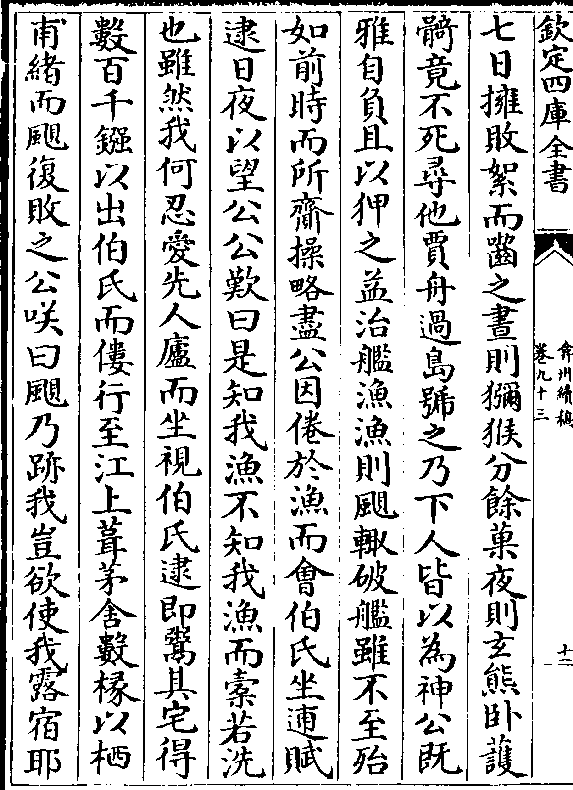 欽定四庫全書
弇州續稿
卷九十三
十二
七日擁敗絮而齧之晝則獼猴分餘菓夜則玄熊卧護
髃竟不死尋他賈舟過島號之乃下人皆以為神公既
雅自負且以狎之益治艦漁漁則颶輙破艦雖不至殆
如前時而所齎操略盡公因倦於漁而會伯氏坐逋賦
逮日夜以望公公歎曰是知我漁不知我漁而索若洗
也雖然我何忍愛先人廬而坐視伯氏逮即鬻其宅得
數百千鏹以出伯氏而僂行至江上葺茅舍數椽以栖
甫緒而颶復敗之公咲曰颶乃跡我豈欲使我露宿耶